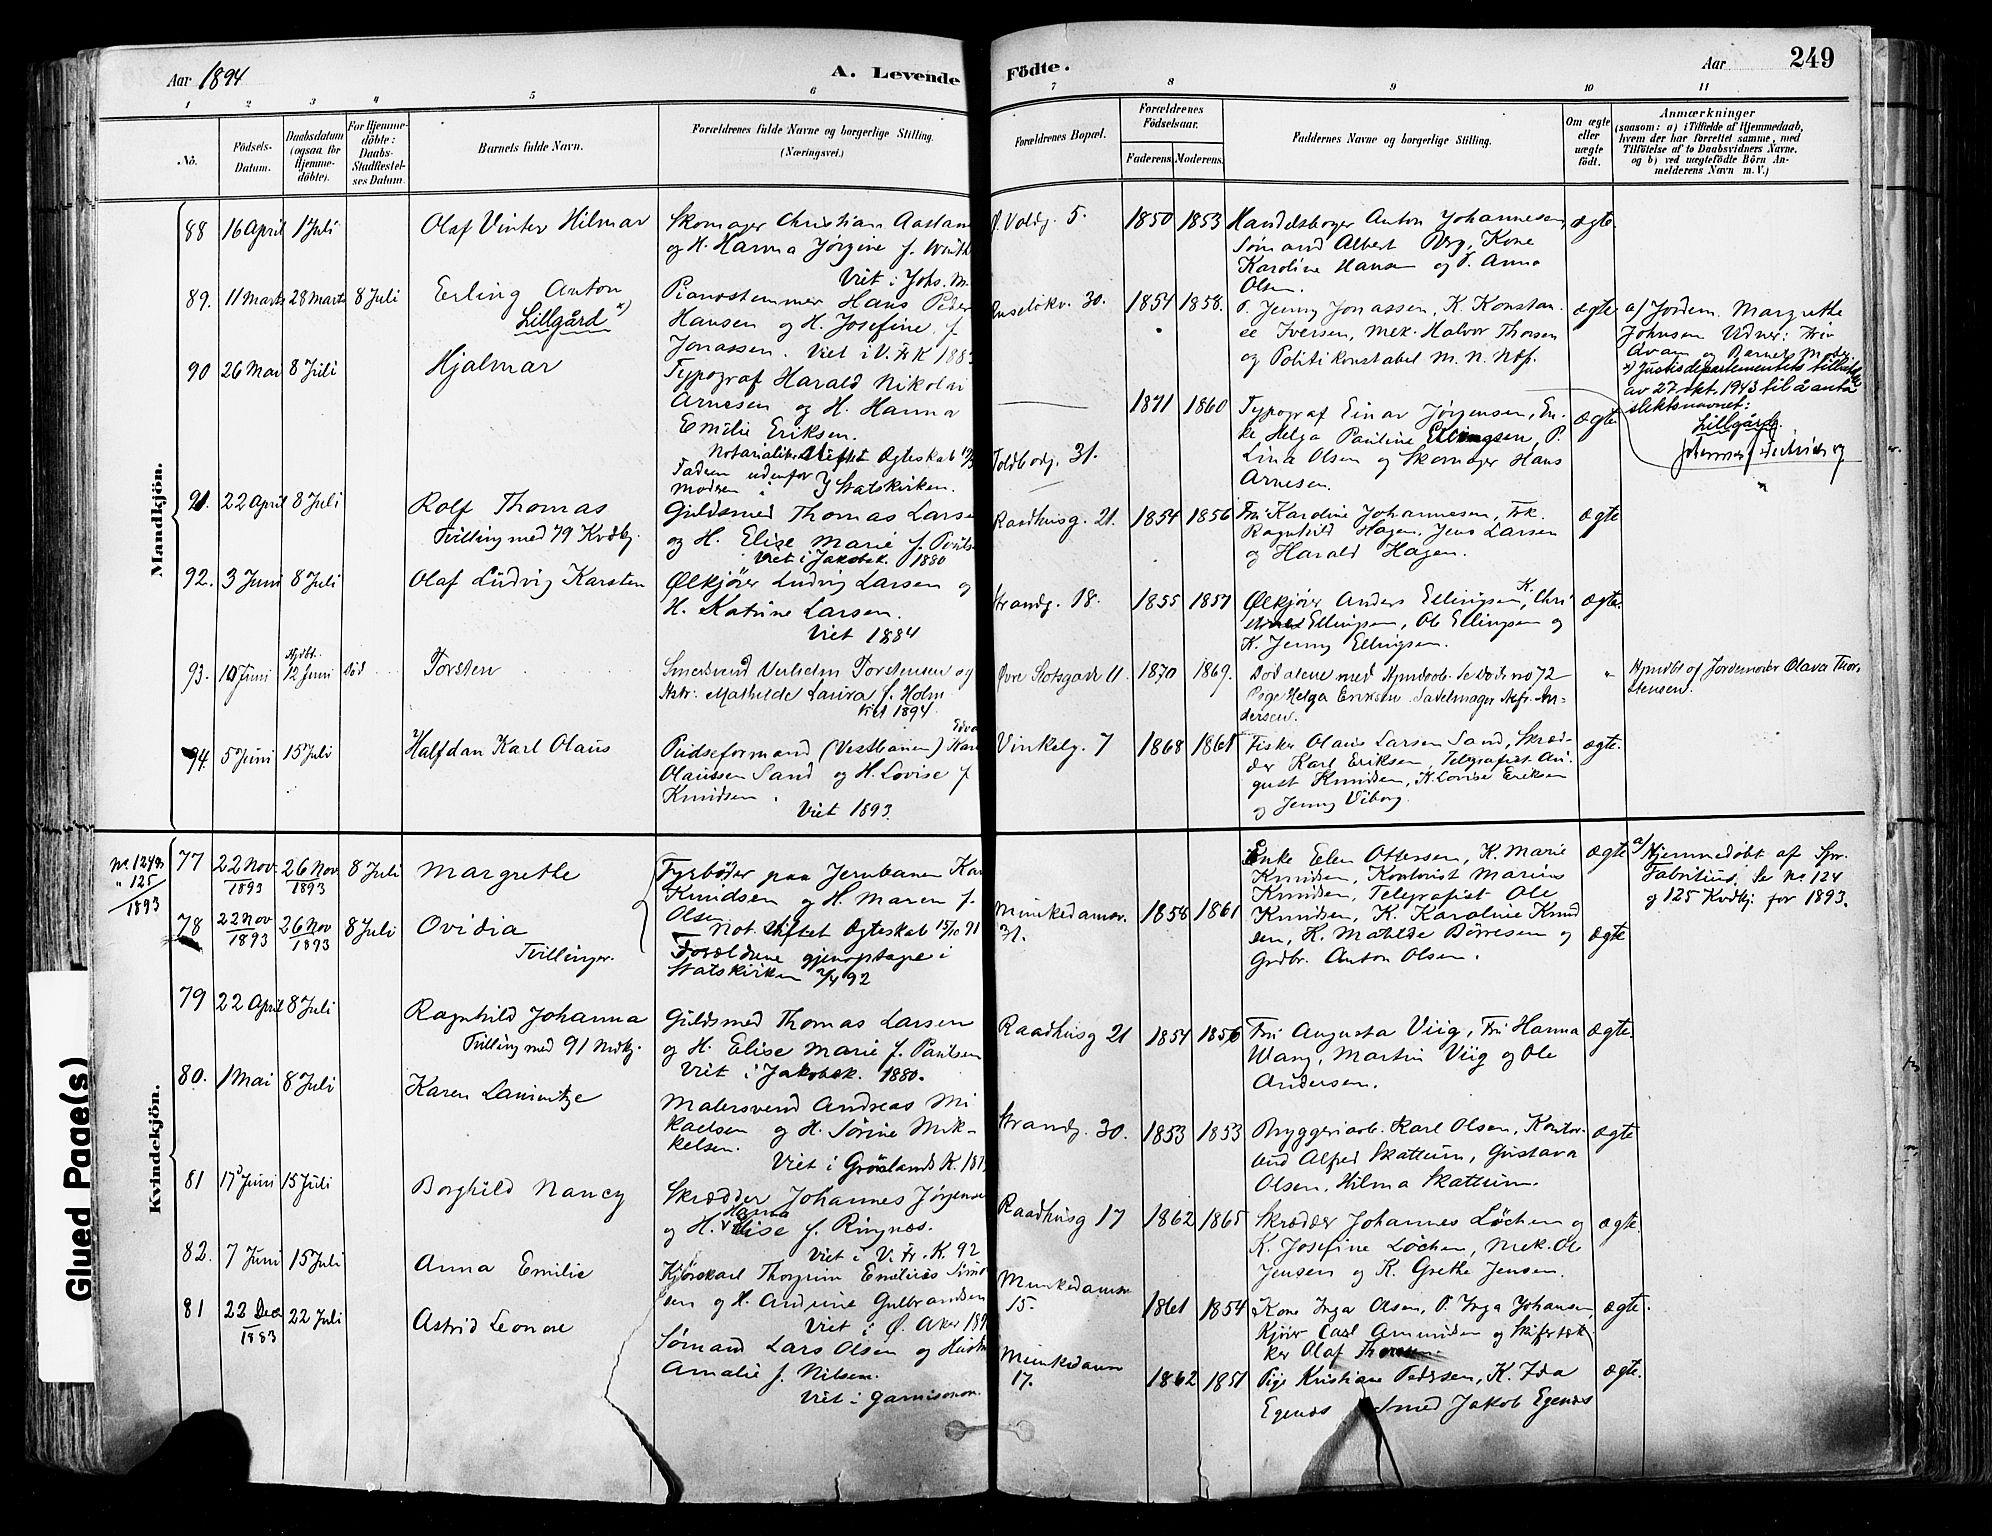 Aar 1894
A. Levende
Födte.
Aar
249
1 2 3 4 5 6 7 8 9 10 11
No.
Födsels-Datum.
Daabsdatum (ogsaa for Hjemme-döbte).
For Hjemme-döbte: Daabs-Stadfæstel-ses Datum.
Barnets fulde Navn.
Forældrenes fulde Navne og borgerlige Stilling.
(Næringsvei.)
Forældrenes Bopæl.
Forældrenes Födselsaar.
Faderens. Moderens.
Faddernes Navne og borgerlige Stilling.
Om ægte eller uægte födt.
Anmærkninger
(saasom: a) i Tilfælde af Hjemmedaab,
hvem der har forrettet samme, med
Tilföielse af to Daabsvidners Navne,
og b) ved uægtefödte Börn An-
melderens Navn m. V.)
Mandkjön.
88 16 April 1 Juli Olaf Vinter Hilmar
Skomager Christian
og H. Hanna Jørgine f.
Voldg. 5. 1850 1853
Anton Johannesen,
Sømand Albert Berg, Kone
Karoline Hansen og P. Anna
Olsen.
ægte.
89. 11 Marts 28 Marts 8 Juli Erling Anton
Lillgård x)
Viet i Johs.
Pianostemmer Hans Peder
Hansen og H. Josefine f.
Jonassen. Viet i V. Frk 1883
30. 1854 1858.
P. Jenny Jonassen, K. Konstan-
ce Iversen, Mek. Halvor Thorsen
og Politikonstabel M. N. Næs.
ægte
a/ Jordem. Margrethe
Johnsen Vidner:
og Barnets Moder.
x) Justisdepartementets
av 27 okt. 1943 til å anta
slektsnavnet:
Lillgård.
90 26 Mai 8 Juli Hjalmar
Typograf Harald Nikolai
Arnesen og H. Hanna
Emilie Eriksen.
Notarialiter stiftet Ægteskab
Faderen udenfor
Moderen i Statskirken.
Toldbodg. 31.
1871 1860
Typograf Einar Jørgensen, En-
ke Helga Pauline Ellingsen, P.
Lina Olsen og Skomager Hans
Arnesen.
ægte
91. 22 April 8 Juli Rolf Thomas
Tvilling med 79 Kvdkj.
Guldsmed Thomas Larsen
og H. Elise Marie f.
Viet i Jakobsk. 1880
Raadhusg. 21. 1854 1856
Fru Karoline Johannesen, Frk.
Ragnhild Hagen, Jens Larsen
og Harald Hagen.
ægte
92. 3 Juni 8 Juli Olaf Ludvig Karsten
Ølkjører Ludvig Larsen og
H. Katrine Larsen.
Viet 1884
Strandg. 18. 1855 1857
Ølkjører Anders Ellingsen, K. Chri
Ellingsen, Ole Ellingsen og
K. Jenny Ellingsen.
ægte.
93. 10 Juni Hjdbt. 12 Juni Død Torsten
Smedsvend Torstensen og
Hstr: Mathilde Laura f. Holm
Viet 1894.
Øvre Slotsgade 11 1870 1869.
Død alene med Hjmdaab. Se Døds no 72
Pige Helga Eriksen. Sadelmager Alfr. An-
dersen.
"
Hjmdbt af Jordemoder Olava Thor-
stensen.
94. 5 Juni 15 Juli Halfdan Karl Olaus
Pudseformand (Vestbanen)
Olaussen Sand og H. Lovise f.
Knudsen.
Viet 1893.
Vinkelg. 7 1868 1861
Fisker Olaus Larsen Sand, Skræd-
der Karl Eriksen, Telegrafist Au-
gust Knudsen, K. Lovise Eriksen
og Jenny Viborg.
ægte.
Kvindekjön.
No 124 " 125 / 1893
77 22 Nov. 1893 26 Nov 1893 8 Juli Margrethe
78 22 Nov 1893 26 Nov 1893 8 Juli Ovidia
Tvillinger.
Fyrbøder paa Jernbanen
Knudsen og H. Maren f.
Olsen
Not. stiftet Ægteskab 15/10 91
Forældrene gjenoptage i
Statskirken 92
Munkedamsv. 31. 1858 1861
Enke Elen Ottersen, K. Marie
Knudsen, Kontorist Marius
Knudsen, Telegrafist Ole
Knudsen, K. Karoline Knud
sen, K. Matilde Børresen og
Grdbr. Anton Olsen.
ægte
ægte
a/ Hjemmedøbt af Spr.
Fabritius. Se No 124
og 125 Kvdkj. for 1893.
79 22 April 8 Juli Ragnhild Johanna
Tvilling med 91 Mdkj.
Guldsmed Thomas Larsen
og H. Elise Marie f. Paulsen
Viet i Jakobsk. 1880.
Raadhusg 21 1854 1856
Fru Augusta Viig, Fru Hanna
Wang, Martin Viig og Ole
Andersen.
ægte.
80. 1 Mai 8 Juli Karen
Malersvend Andreas Mi
kaelsen og H. Sørine Mik-
kelsen.
Viet i Grønlands K.
Strandg. 30. 1853 1853
Bryggeriarb. Karl Olsen, Kontor-
bud Alfred Skattum, Gustava
Olsen, Hilma Skattum.
ægte
81 17 Juni 15 Juli Borghild Nancy
Skrædder Johannes Jørgensen
og H. Hanna Elise f. Ringnæs.
Viet i V. Fr. K. 92
Raadhusg 17 1862 1865
Skrædder Johannes Løchen og
K. Josefine Løchen, Mek. Ole
Jensen og K. Grethe Jensen.
ægte.
82. 7 Juni 15 Juli Anna Emilie
Kjørekarl Thorgrim Emilius
sen og H. Andrine Gulbrandsen
Viet i Ø. Aker
Munkedamsv 15. 1861 1854
Kone Inga Olsen, P. Inga Johansen,
Kjører Carl Amundsen og Skifertæk-
ker Olaf
ægte.
81 22 Dec 1883 22 Juli Astrid Leonore
Sømand Lars Olsen og Hustru
Amalie f. Nilsen.
Viet i Garnisonen.
Munkedamv 17. 1862 1851
Pige Kristiane Pedersen, K. Ida
Egenæs Smed Jakob Egenæs
ægte.
Glued Page(s)